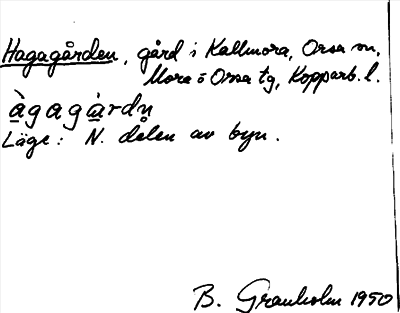 Hagagården, gård i Kallmora, Orsa sn.
Mora o Orsa tg, Kopparb. l.
àgagàrdn̥
Läge: N. delen av byn.
B. Granholm 1950